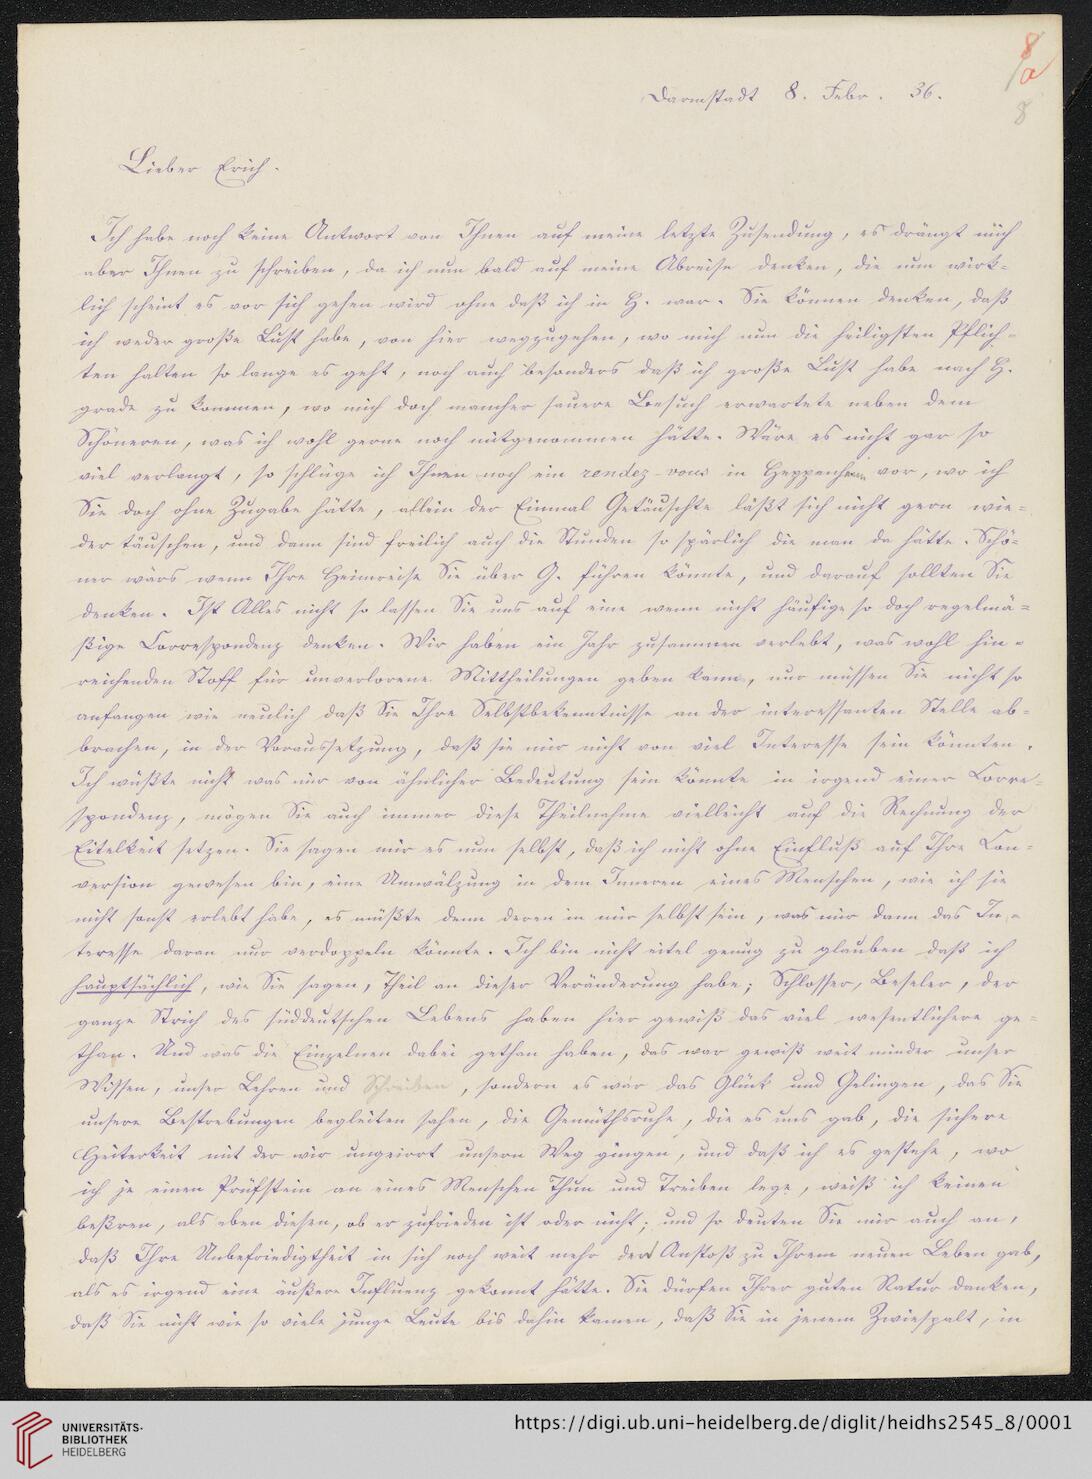 8
a
8
Darmstadt 8. Febr. 36.
Lieber Erich.
Ich habe noch keine Antwort von Ihnen auf meine letzte Zusendung, es drängt mich
aber Ihnen zu schreiben, da ich nun bald auf meine Abreise denken, die nun wirk-
lich scheint es vor sich gehen wird ohne daß ich in H. war. Sie können denken, daß
ich weder große Lust habe, von hier wegzugehen, wo mich nun die heiligsten Pflich-
ten halten so lange es geht, noch auch besonders daß ich große Lust habe nach H.
grade zu kommen, wo mich doch mancher sauere Besuch erwartete neben dem
Schöneren, was ich wohl gerne noch mitgenommen hätte. Wäre es nicht gar so
viel verlangt, so schlüge ich Ihnen noch ein rendez-vous in Heppenheim vor, wo ich
Sie doch ohne Zugabe hätte, allein der Einmal Getäuschte läßt sich nicht gern wie-
der täuschen, und dann sind freilich auch die Stunden so spärlich die man da hätte. Schö-
ner wärs wenn Ihre Heimreise Sie über G. führen könnte, und darauf sollten Sie
denken. Ist Alles nicht so lassen Sie uns auf eine wenn nicht häufige so doch regelmä-
ßige Correspondenz denken. Wir haben ein Jahr zusammen verlebt, was wohl hin-
reichenden Stoff für unverlorene Mittheilungen geben kann, nur müssen Sie nicht so
anfangen wie neulich daß Sie Ihre Selbstbekenntnisse an der interessanten Stelle ab-
brachen, in der Voraussetzung, daß sie mir nicht von viel Interesse sein könnten.
Ich wüßte nicht was mir von ähnlicher Bedeutung sein könnte in irgend einer Corre-
spondenz, mögen Sie auch immer diese Theilnahme vielleicht auf die Rechnung der
Eitelkeit setzen. Sie sagen mir es nun selbst, daß ich nicht ohne Einfluß auf Ihre Con-
version gewesen bin, eine Umwälzung in dem Inneren eines Menschen, wie ich sie
nicht sonst erlebt habe, es müßte denn deren in mir selbst sein, was mir dann das In-
teresse daran nur verdoppeln könnte. Ich bin nicht eitel genug zu glauben daß ich
hauptsächlich, wie Sie sagen, Theil an dieser Veränderung habe; Schlosser, Beseler, der
ganze Strich des süddeutschen Lebens haben hier gewiß das viel wesentlichere ge-
than. Und was die Einzelnen dabei gethan haben, das war gewiß weit minder unser
Wissen, unser Lehren und Schreiben, sondern es war das Glück und Gelingen, das Sie
unsere Bestrebungen begleiten sahen, die Gemüthsruhe, die es uns gab, die sichere
Heiterkeit mit der wir ungeirrt unsern Weg gingen, und daß ich es gestehe, wo
ich je einen Prüfstein an eines Menschen Thun und Treiben lege, weiß ich keinen
beßren, als eben diesen, ob er zufrieden ist oder nicht; und so deuten Sie mir auch an,
daß Ihre Unbefriedigtheit in sich noch weit mehr den Anstoß zu Ihrem neuen Leben gab,
als es irgend eine äußere Influenz gekonnt hätte. Sie dürfen Ihrer guten Natur danken,
daß Sie nicht wie so viele junge Leute bis dahin kamen, daß Sie in jenem Zwiespalt, in
UNIVERSITÄTS-
BIBLIOTHEK
HEIDELBERG
https://digi.ub.uni-heidelberg.de/diglit/heidhs2545_8/0001